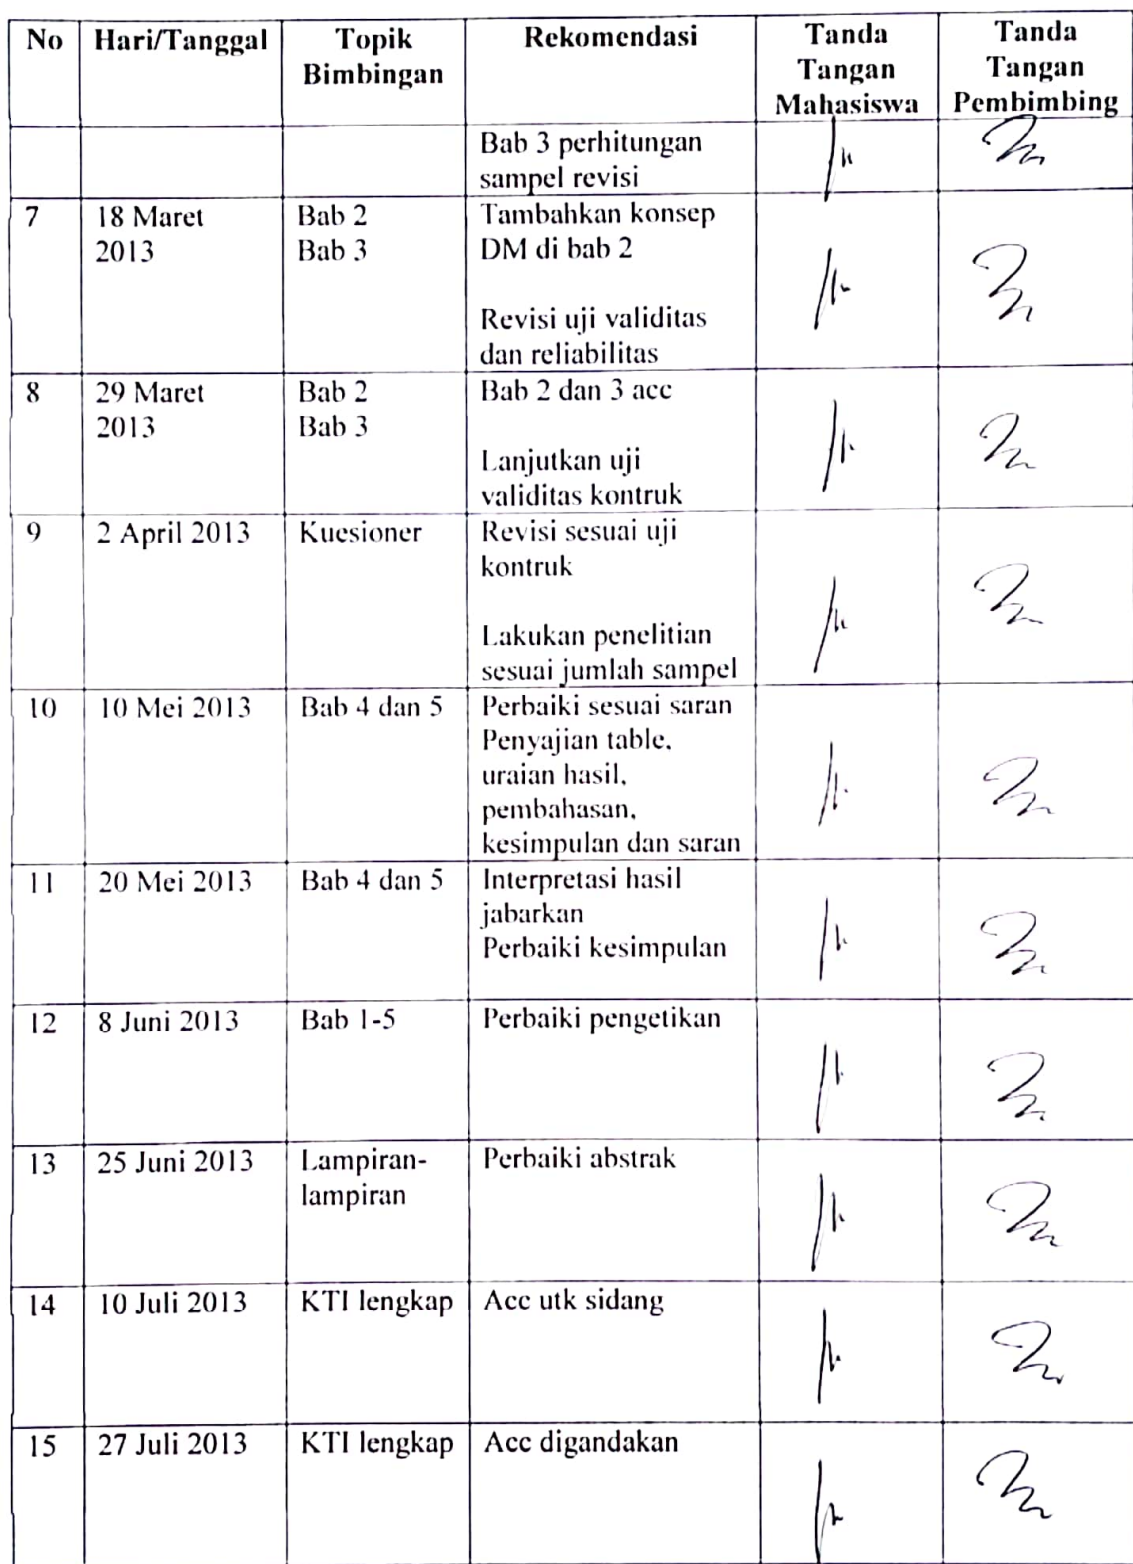 No Hari/Tanggal Topik Bimbingan Rekomendasi Tanda Tangan Mahasiswa Tanda Tangan Pembimbing
Bab 3 perhitungan
sampel revisi
7 18 Maret Bab 2 Tambahkan konsep
2013 Bab 3 DM di bab 2
Revisi uji validitas
dan reliabilitas
8 29 Maret Bab 2 Bab 2 dan 3 acc
2013 Bab 3
Lanjutkan uji
validitas kontruk
9 2 April 2013 Kuesioner Revisi sesuai uji
kontruk
Lakukan penelitian
sesuai jumlah sampel
10 10 Mei 2013 Bab 4 dan 5 Perbaiki sesuai saran
Penyajian table,
uraian hasil,
pembahasan,
kesimpulan dan saran
11 20 Mei 2013 Bab 4 dan 5 Interpretasi hasil
jabarkan
Perbaiki kesimpulan
12 8 Juni 2013 Bab 1-5 Perbaiki pengetikan
13 25 Juni 2013 Lampiran- Perbaiki abstrak
lampiran
14 10 Juli 2013 KTI lengkap Acc utk sidang
15 27 Juli 2013 KTI lengkap Acc digandakan